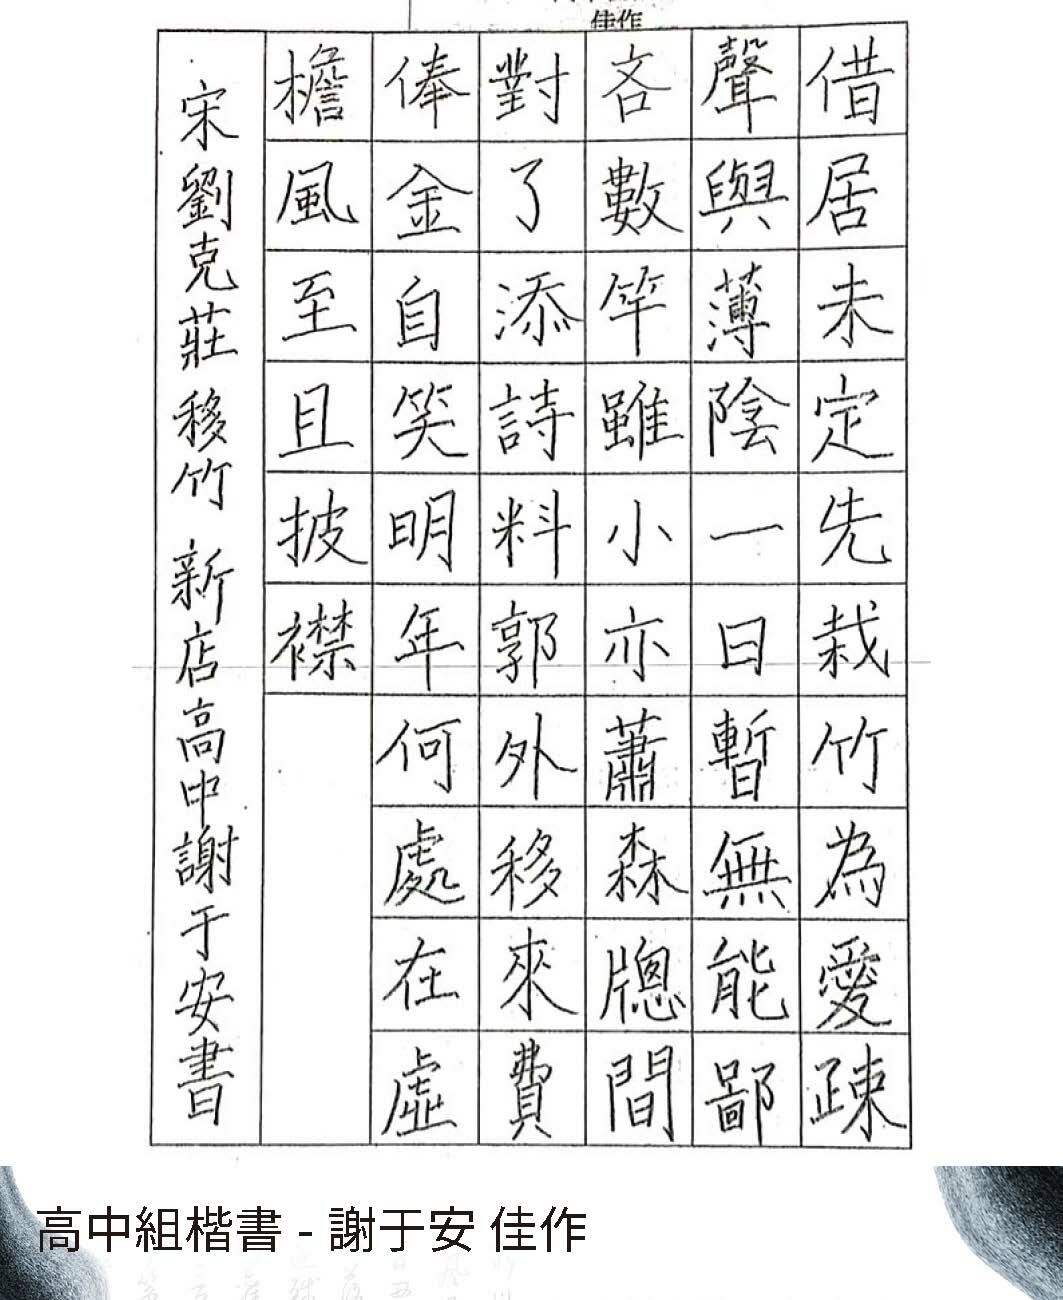 佳作
借居未定先栽竹為愛疎
聲與薄陰一日暫無能鄙
吝數竿雖小亦蕭森牕間
對了添詩料郭外移來費
俸金自笑明年何處在虛
檐風至且披襟
宋劉克莊移竹 新店高中謝于安書
高中組楷書 - 謝于安 佳作